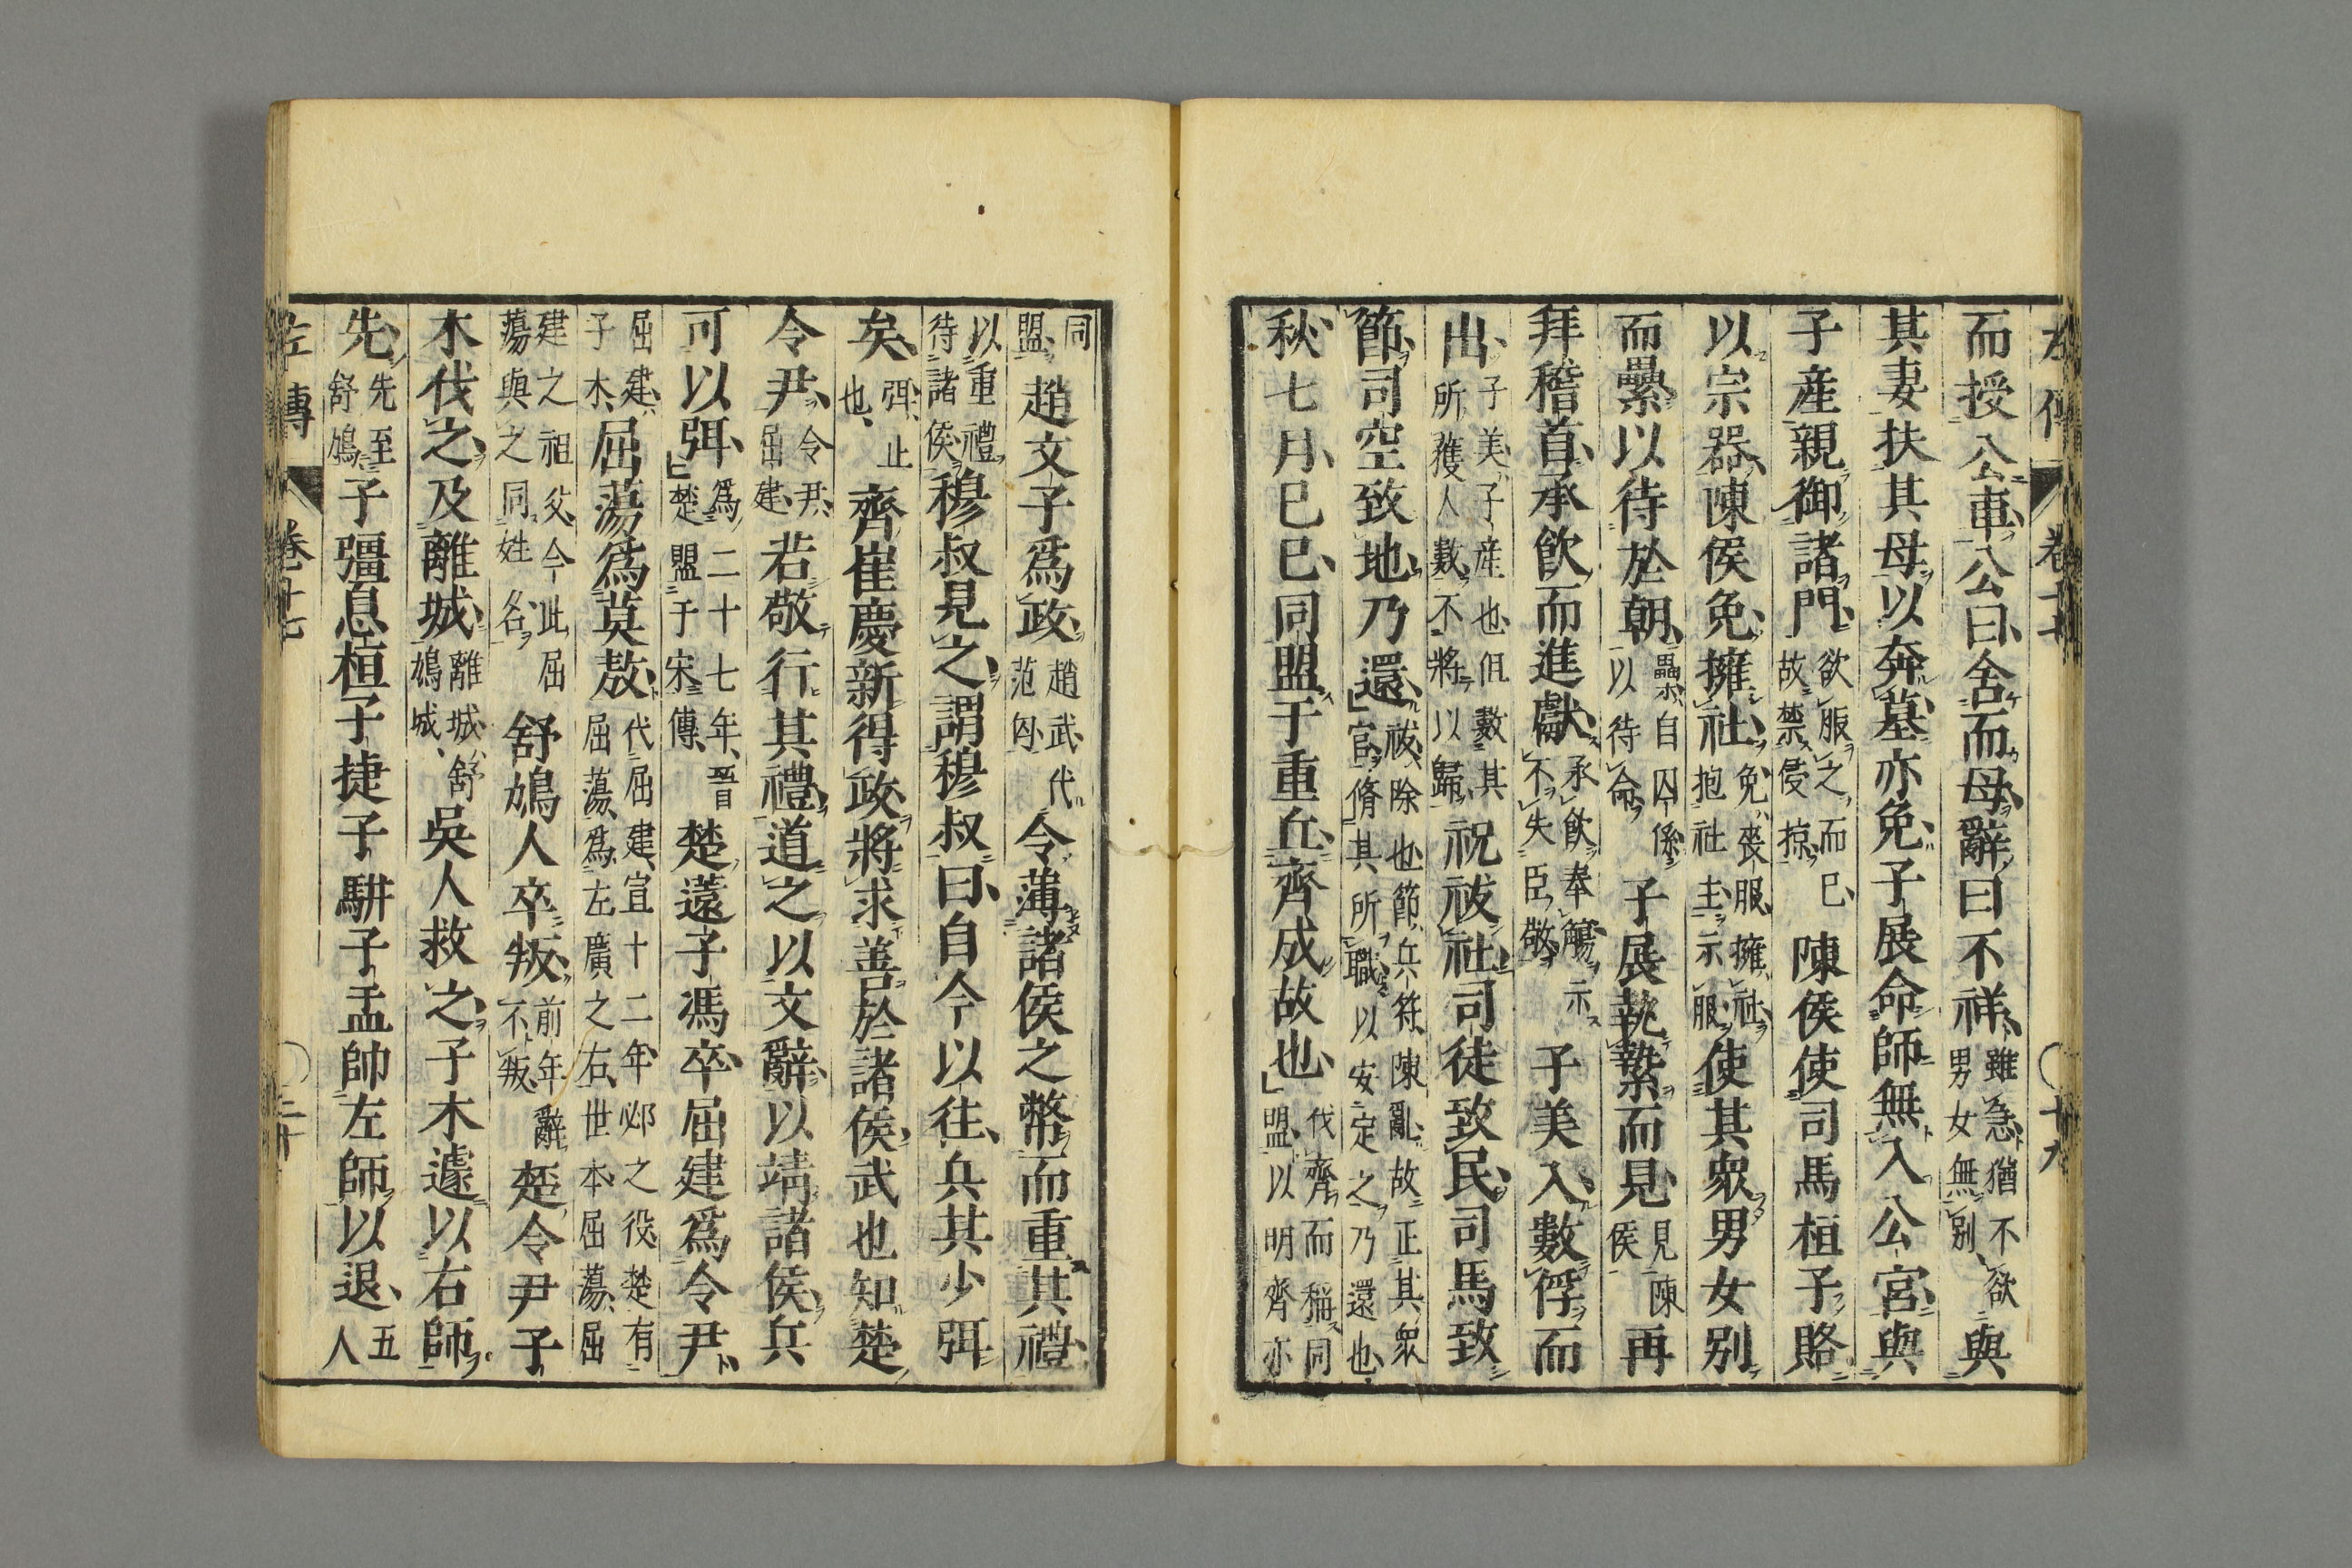 左傳 卷十七 十九
而授公車公曰舍而母辭曰不祥雖急猶不欲男女無別與
其妻扶其母以奔墓亦免子展命師無入公宮與
子產親御諸門欲服之而已故禁侵掠陳侯使司馬桓子賂
以宗器陳侯免擁社免喪服擁社抱社主示服使其衆男女別
而纍以待於朝纍自囚係以待命子展執縶而見見陳侯再
拜稽首承飲而進獻承飲奉觴示不失臣敬子美入數俘而
出子美子產也但數其所獲人數不將以歸祝祓社司徒致民司馬致
節司空致地乃還祓除也節兵符陳亂故正其衆官脩其所職以安定之乃還也
秋七月己巳同盟于重丘齊成故也伐齊而稱同盟以明齊亦
同盟趙文子爲政趙武代范匃令薄諸侯之幣而重其禮
以重禮待諸侯穆叔見之謂穆叔曰自今以往兵其少弭
矣弭止也齊崔慶新得政將求善於諸侯武也知楚
令尹令尹屈建若敬行其禮道之以文辭以靖諸侯兵
可以弭爲二十七年晉楚盟于宋傳楚薳子馮卒屈建爲令尹
屈建子木屈蕩爲莫敖代屈建宣十二年邲之役楚有屈蕩爲左廣之右世本屈蕩屈
建之祖父今此屈蕩與之同姓名舒鳩人卒叛前年辭不叛楚令尹子
木伐之及離城離城舒鳩城吳人救之子木遽以右師
先先至舒鳩子彊息桓子捷子駢子盂帥左師以退五人
左傳 卷十七 二十